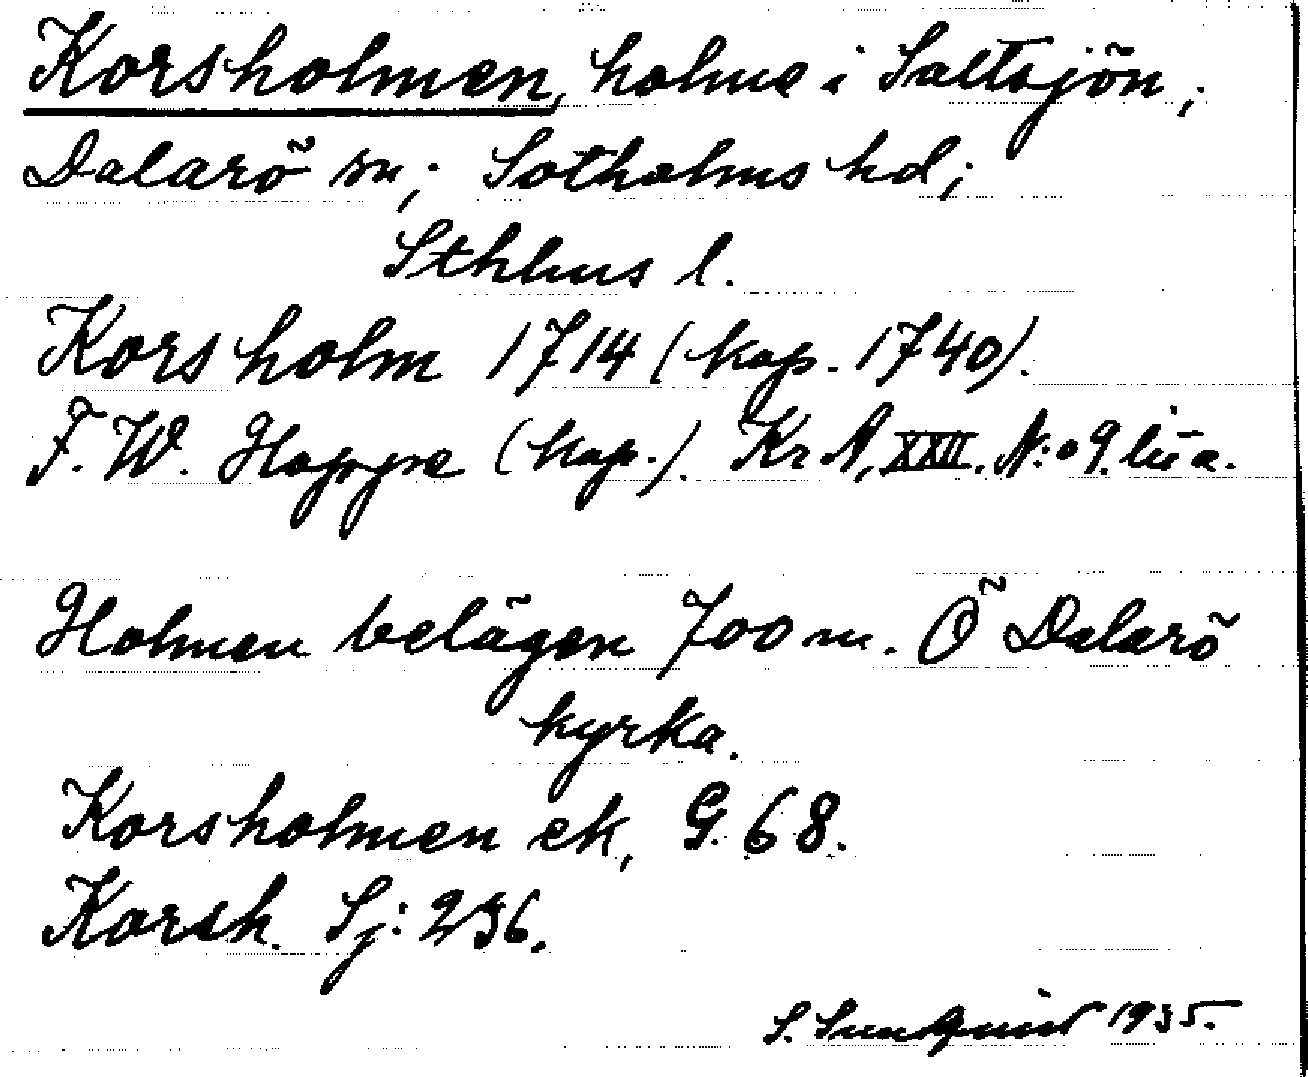 Korsholmen, holme i Saltsjön,
Dalarö sn; Sotholms hd;
Sthlms l.
Korsholm 1714 (kop. 1740).
F. W. Hoppe (kop.). Kr A, XXII. N:o 9. lit a.
Holmen belägen 700 m. Ö Dalarö
kyrka.
Korsholmen ek, G. 68.
Korsh. Sj: 236.
S. Sundquist 1935.